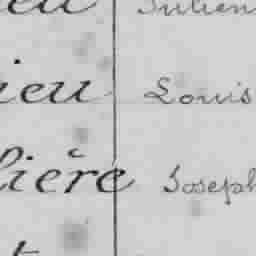 Julien
ieu Louis
lière Joseph